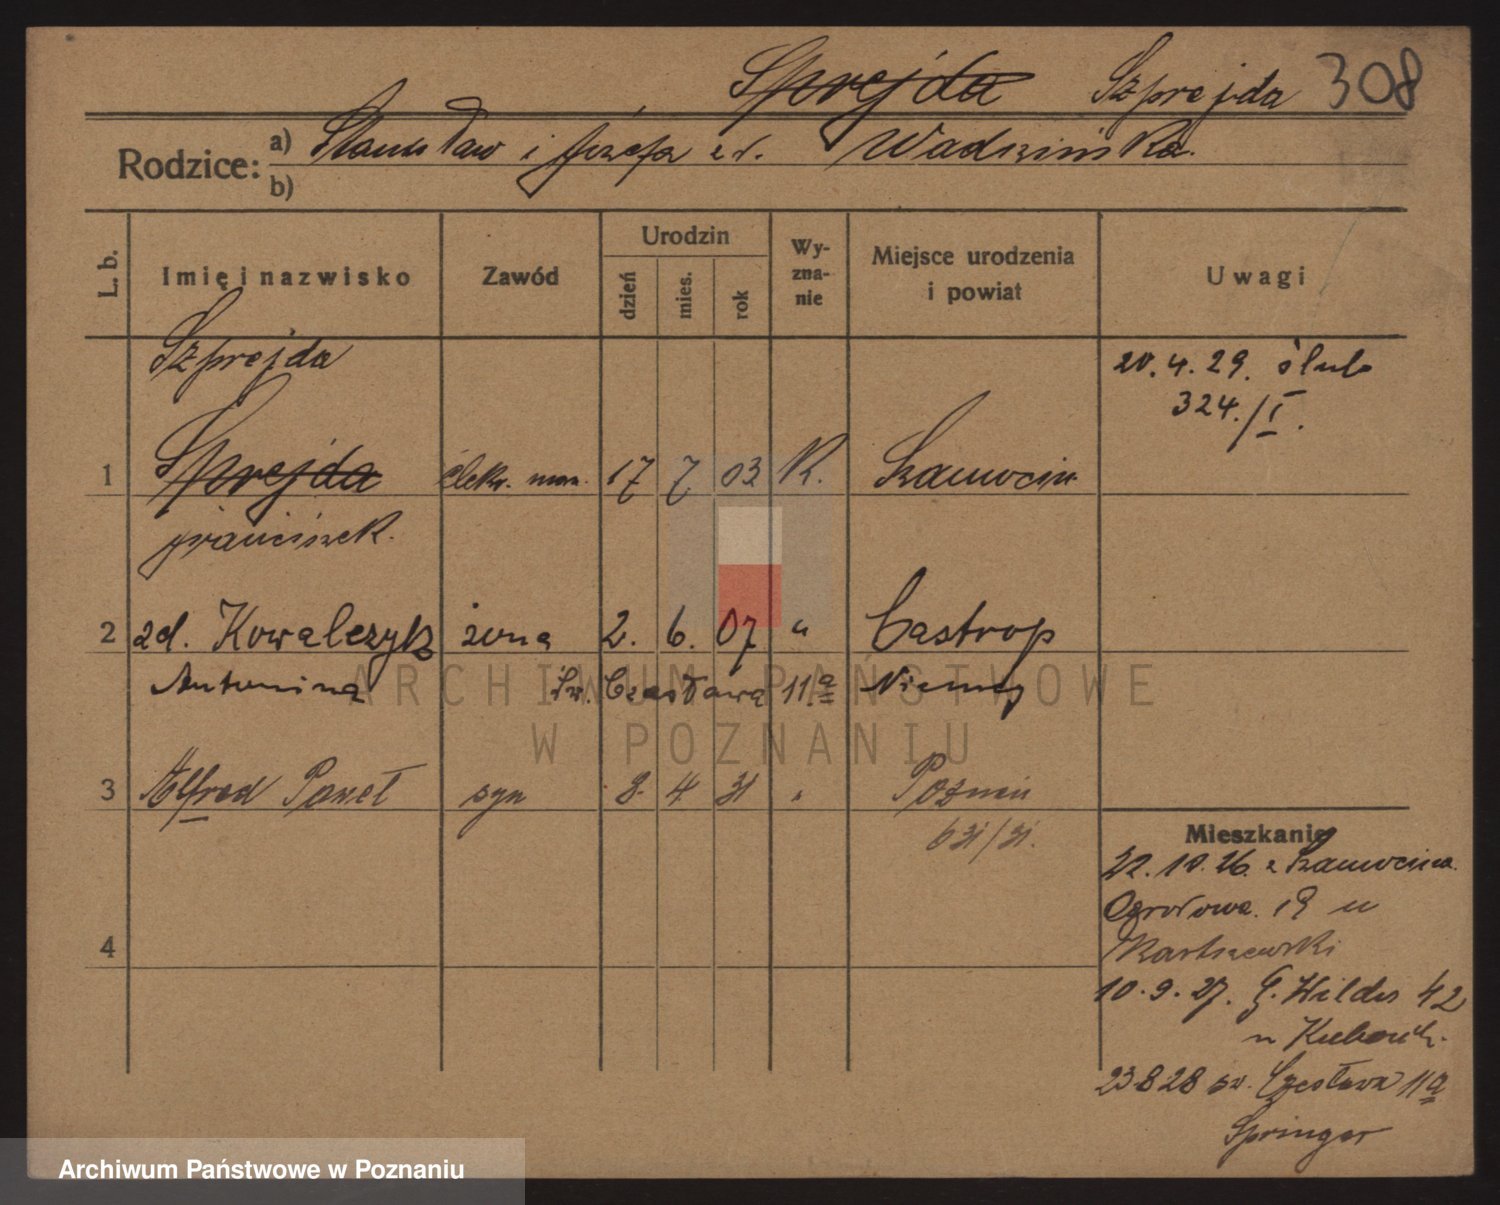 Sprejda Szprejda 308
Rodzice: a) Stanisław i Józefa zd. Wadzińska.
b)
L. b. Imię i nazwisko Zawód Urodzin dzień mies. rok Wy-zna-nie Miejsce urodzenia i powiat Uwagi
Szprejda 20.4.29. ślub
324./I.
1 Sprejda elekr. mon. 17 7 03 K. Szamocin
Franciszek.
2 zd. Kowalczyk żona 2. 6. 07 " Castrop
Antonina Św. Czesława 11a Niemcy
3 Alfred Paweł syn 8. 4 31 " Poznań
631/31.
Mieszkanie
22.10.26. z Szamocina.
Ogrodowa. 19 u
10.9.27. G. Wilda 42
u
4
23 8 28 św. Czesława 11a
Springer
ARCHIWUM PAŃSTWOWE
W POZNANIU
Archiwum Państwowe w Poznaniu